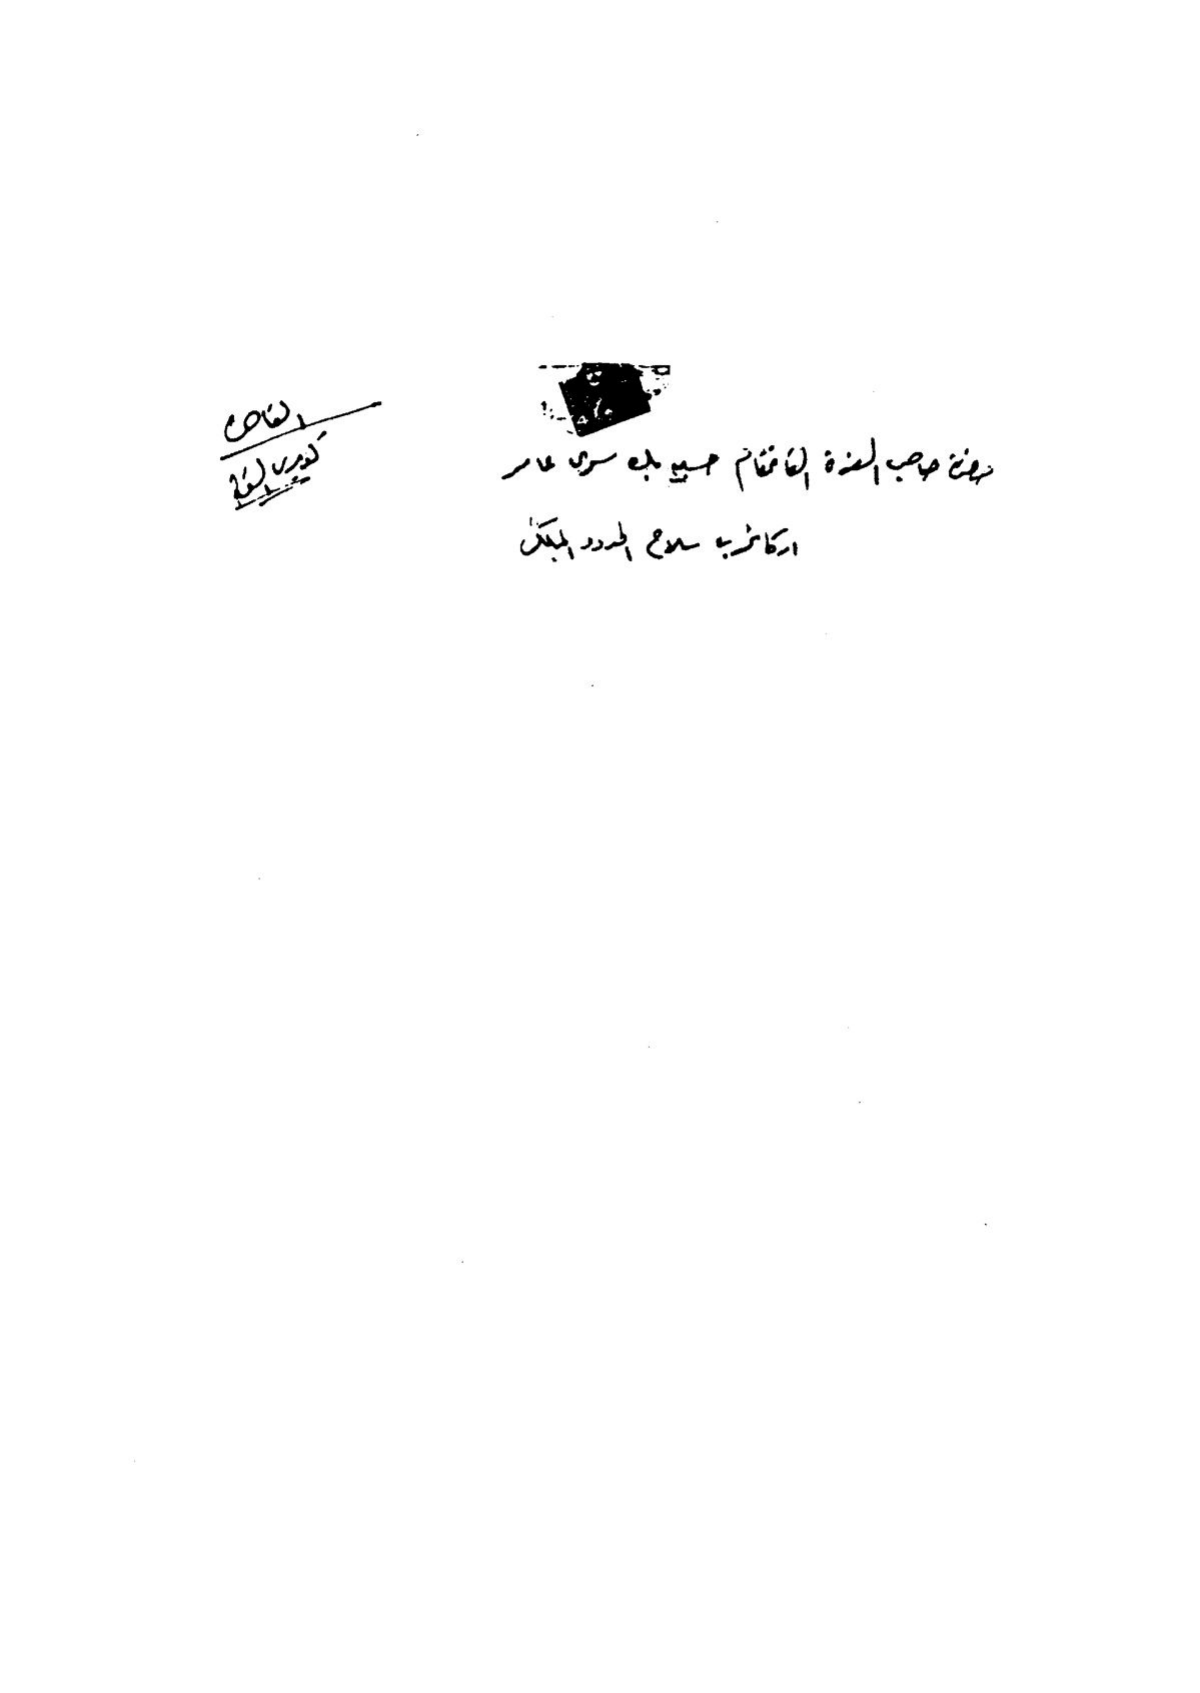 القاهرة
كوبري القبة
حضرة صاحب العزة القائمقام حسين بك سرى عامر
اركانحرب سلاح الحدود الملكى